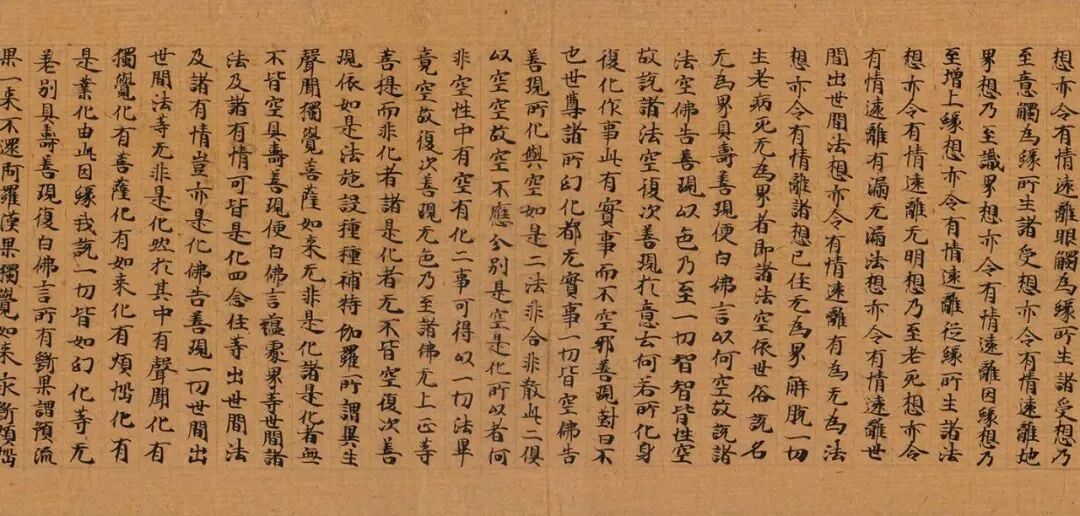 想亦令有情遠離眼觸為緣所生諸受想乃
至意觸為緣所生諸受想亦令有情遠離地
界想乃至識界想亦令有情遠離因緣想乃
至增上緣想亦令有情遠離從緣所生諸法
想亦令有情遠離无明想乃至老死想亦令
有情遠離有漏无漏法想亦令有情遠離世
間出世間法想亦令有情遠離有為无為法
想亦令有情離諸想已住无為界解脫一切
生老病死无為界者即諸法空依世俗說名
无為界具壽善現便白佛言以何空故說諸
法空佛告善現以色乃至一切智智皆性空
故說諸法空復次善現於意云何若所化身
復化作事此有實事而不空邪善現對曰不
也世尊諸所幻化都无實事一切皆空佛告
善現所化與空如是二法非合非散此二俱
以空空故空不應分別是空是化所以者何
非空性中有空有化二事可得以一切法畢
竟空故復次善現无色乃至諸佛无上正等
菩提而非化者諸是化者无不皆空復次善
現依如是法施設種種補特伽羅所謂異生
聲聞獨覺菩薩如來无非是化諸是化者無
不皆空具壽善現便白佛言蘊處界等世間諸
法及諸有情可皆是化四念住等出世間法
及諸有情豈亦是化佛告善現一切世間出
世間法等无非是化然於其中有聲聞化有
獨覺化有菩薩化有如來化有煩惱化有
是業化由此因緣我說一切皆如幻化等无
差別具壽善現復白佛言所有斷果謂預流
果一來不還阿羅漢果獨覺如來永斷煩惱